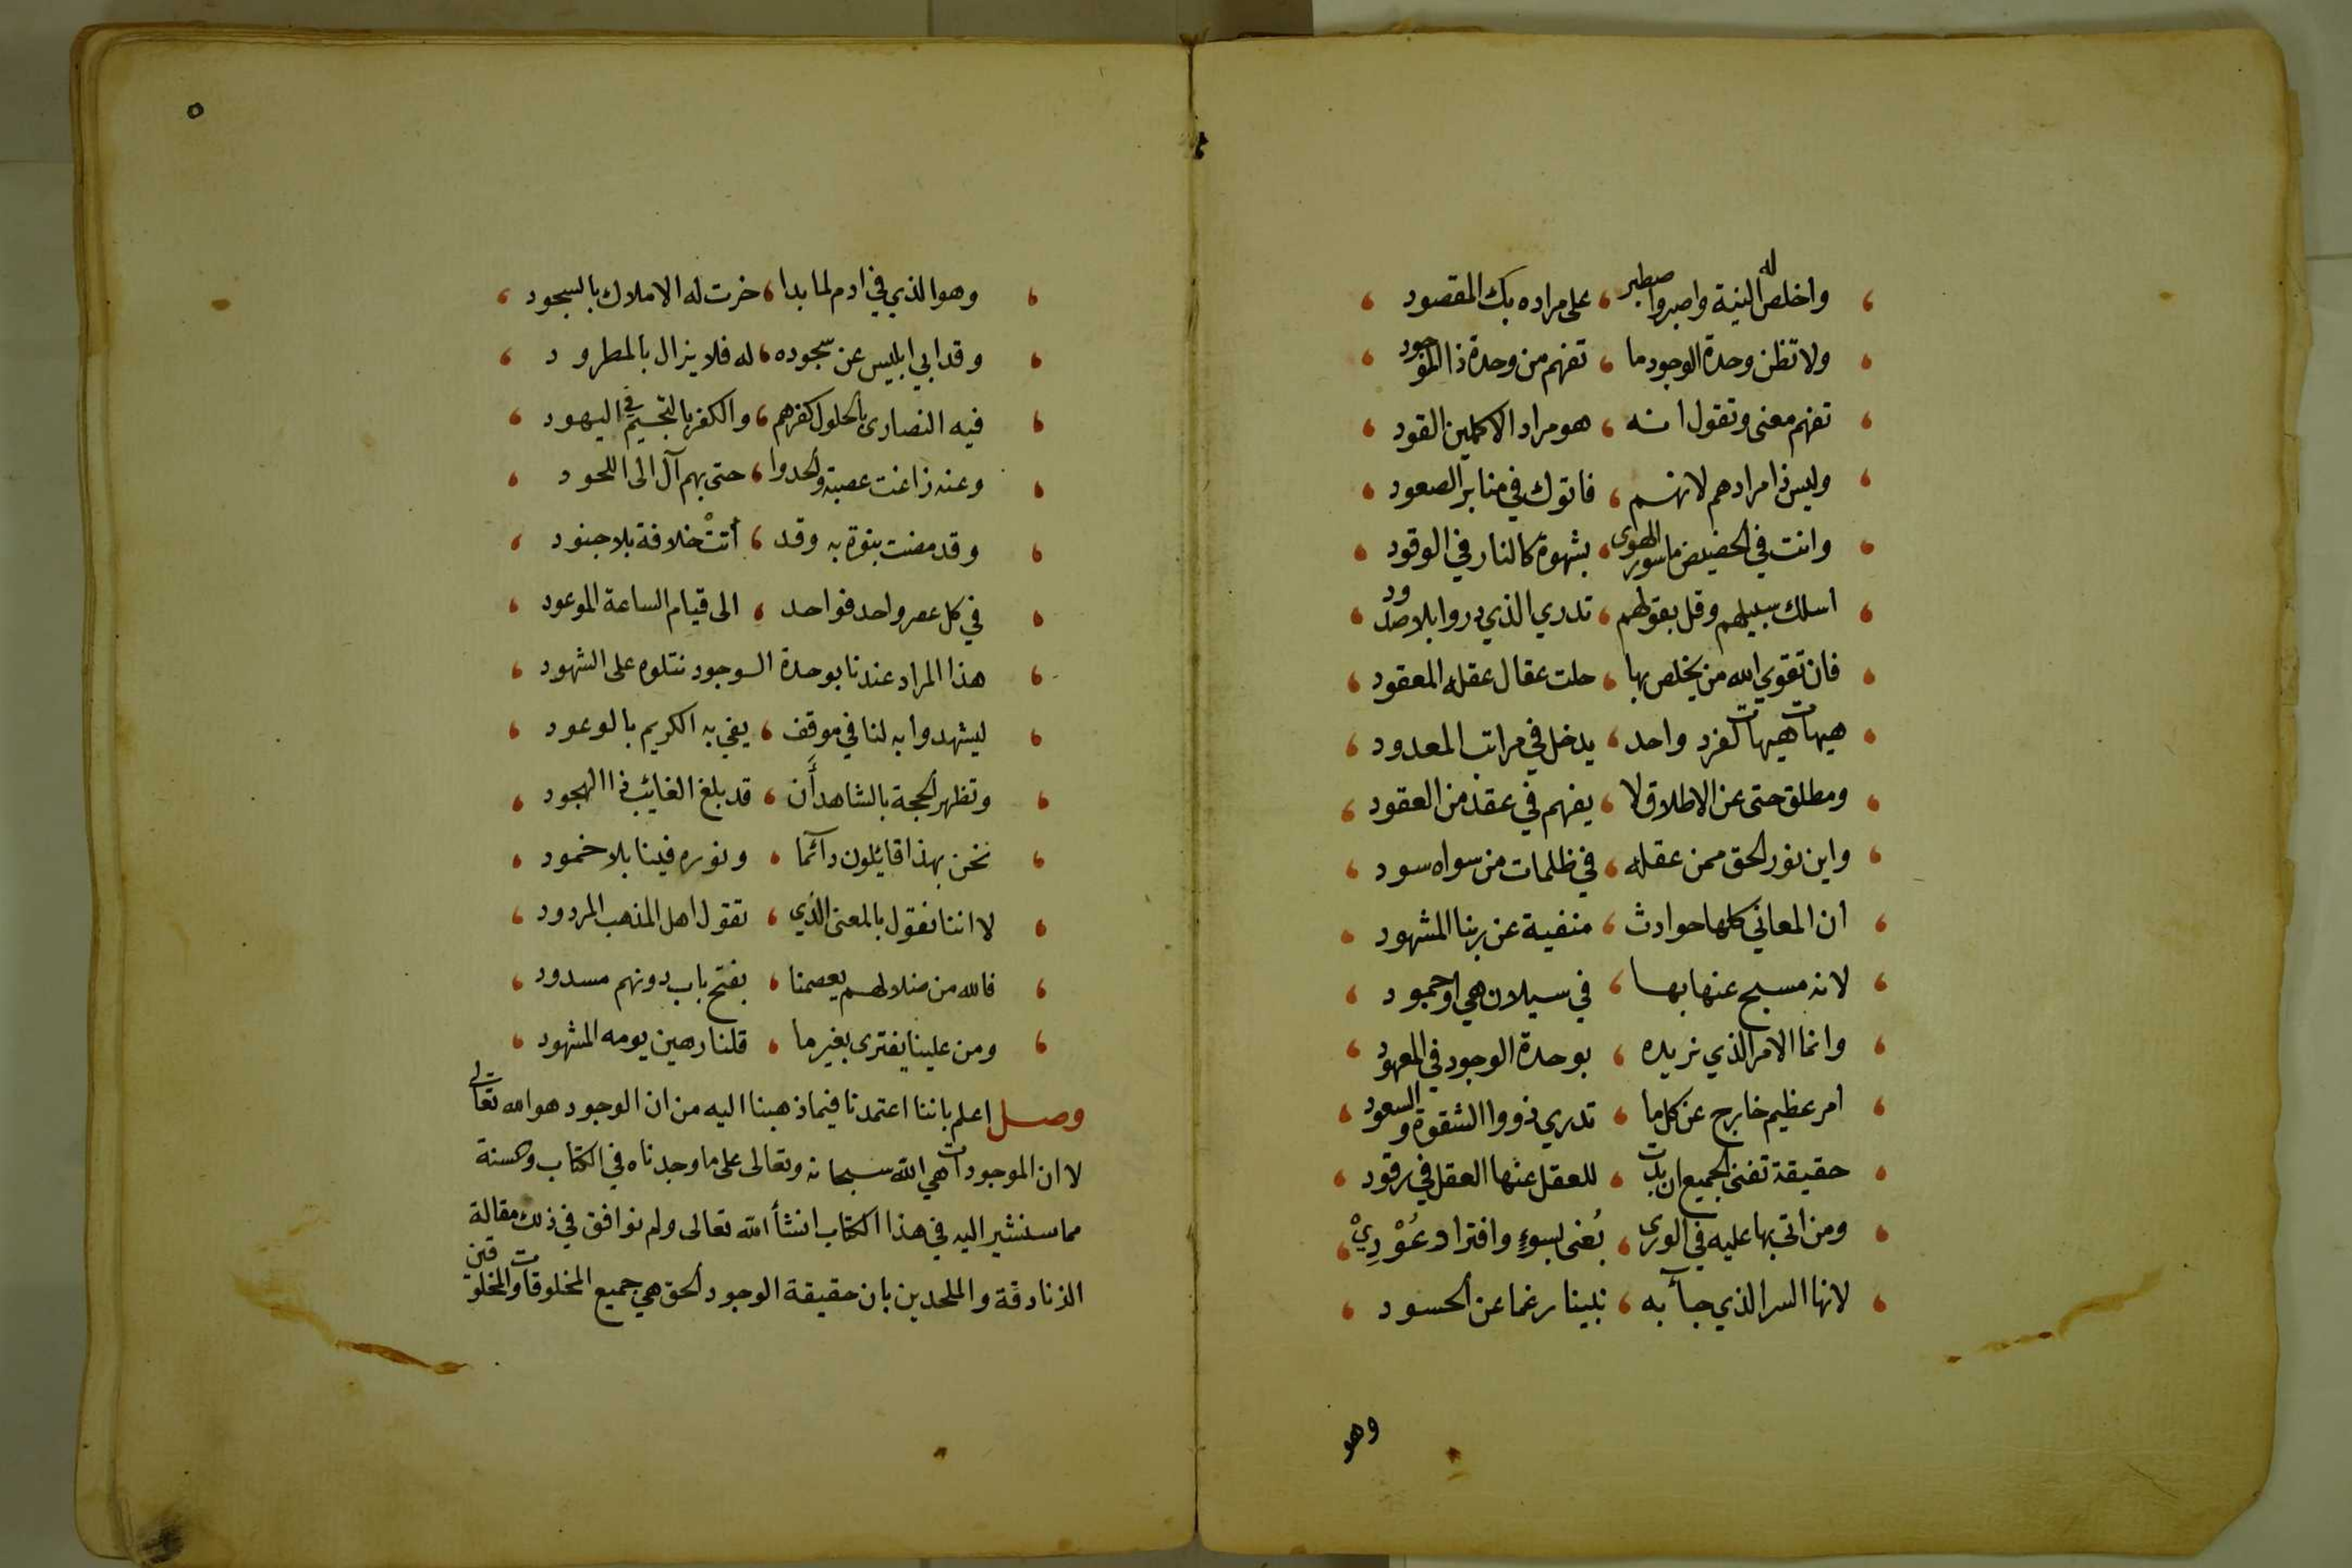 واخلص له النية واصبر واصطبر ، على مراده بك المقصود
ولا تظن وحدة الوجود ما ، تفهم من وحدة ذا الموجود
تفهم معنى وتقول انه ، هو مراد الاكملين القود
وليس ذا مرادهم لانهم ، فاتوك في منابر الصعود
وانت في الحضيض ماسور الهوى ، بشهوة كالنار في الوقود
اسلك سبيلهم وقل بقولهم ، تدري الذي دروا بلا صدود
فان تقوى الله من يخلص بها ، حلت عقال عقله المعقود
هيهات هيهات لفرد واحد ، يدخل في مراتب المعدود
ومطلق حتى عن الاطلاق لا ، يفهم في عقد من العقود
واين نور الحق ممن عقله ، في ظلمات من سواه سود
ان المعاني كلها حوادث ، منفية عن ربنا المشهود
لانه مسبح عنها بها ، في سيلان هي او جمود
وانما الامر الذي نريده ، بوحدة الوجود في المعهود
امر عظيم خارج عن كل ما ، تدري ذووا الشقوة والسعود
حقيقة تفنى الجميع ان بدت ، للعقل عنها العقل في رقود
ومن اتى بها عليه في الورى ، بُغى بسوءٍ وافترا وعُوْدِيْ
لانها السر الذي جآء به ، نبينا رغما عن الحسود
وهو
٥
وهو الذي في ادم لما بدا ، خرت له الاملاك بالسجود
وقد ابي ابليس عن سجوده ، له فلا يزال بالمطرود
فيه النصارى بالحلول كفرهم ، والكفر بالتجسيم في اليهود
وعنه زاغت عصبة والحدوا ، حتى بهم آل الى اللحود
وقد مضت بنوة به وقد ، أتتْ خلافة بلا جنود
في كل عصر واحد فواحد ، الى قيام الساعة الموعود
هذا المراد عندنا بوحدة الوجود نتلوه على الشهود
ليشهدوا به لنا في موقف ، يفي به الكريم بالوعود
وتظهر الحجة بالشاهد أَن ، قد بلغ الغائب ذا الهجود
نحن بهذا قائلون دآئما ، ونوره فينا بلا خمود
لا اننا نقول بالمعنى الذي ، تقول اهل المذهب المردود
فالله من ضلالهم يعصمنا ، بفتح باب دونهم مسدود
ومن علينا يفترى بغير ما ، قلنا رهين يومه المشهود
وصل اعلم باننا اعتمدنا فيما ذهبنا اليه من ان الوجود هو الله تعالى
لا ان الموجودات هي الله سبحانه وتعالى على ما وجدناه في الكتاب والسنة
مما سنشير اليه في هذا الكتاب انشأ الله تعالى ولم نوافق في ذلك مقالة
الزنادقة والملحدين بان حقيقة الوجود الحق هي جميع المخلوقات والمخلوقين